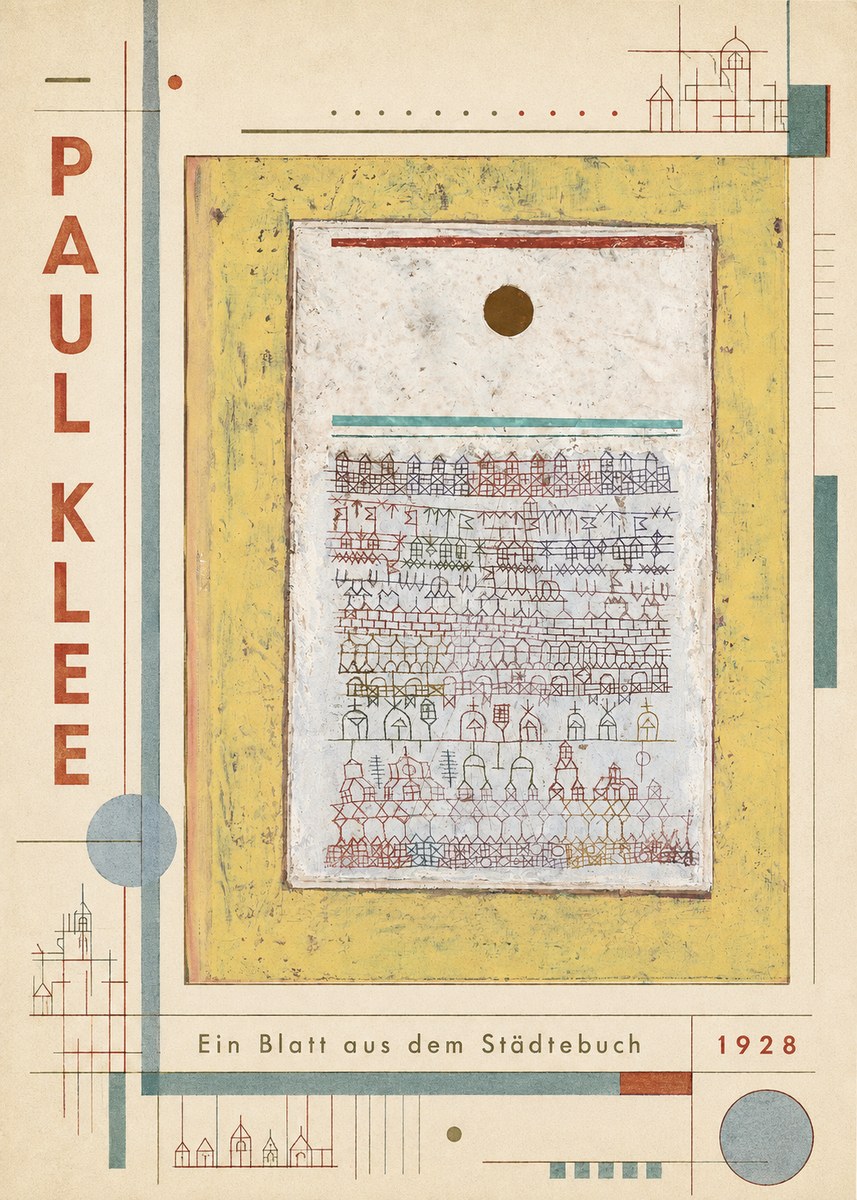 PAUL KLEE
Ein Blatt aus dem Städtebuch
1928